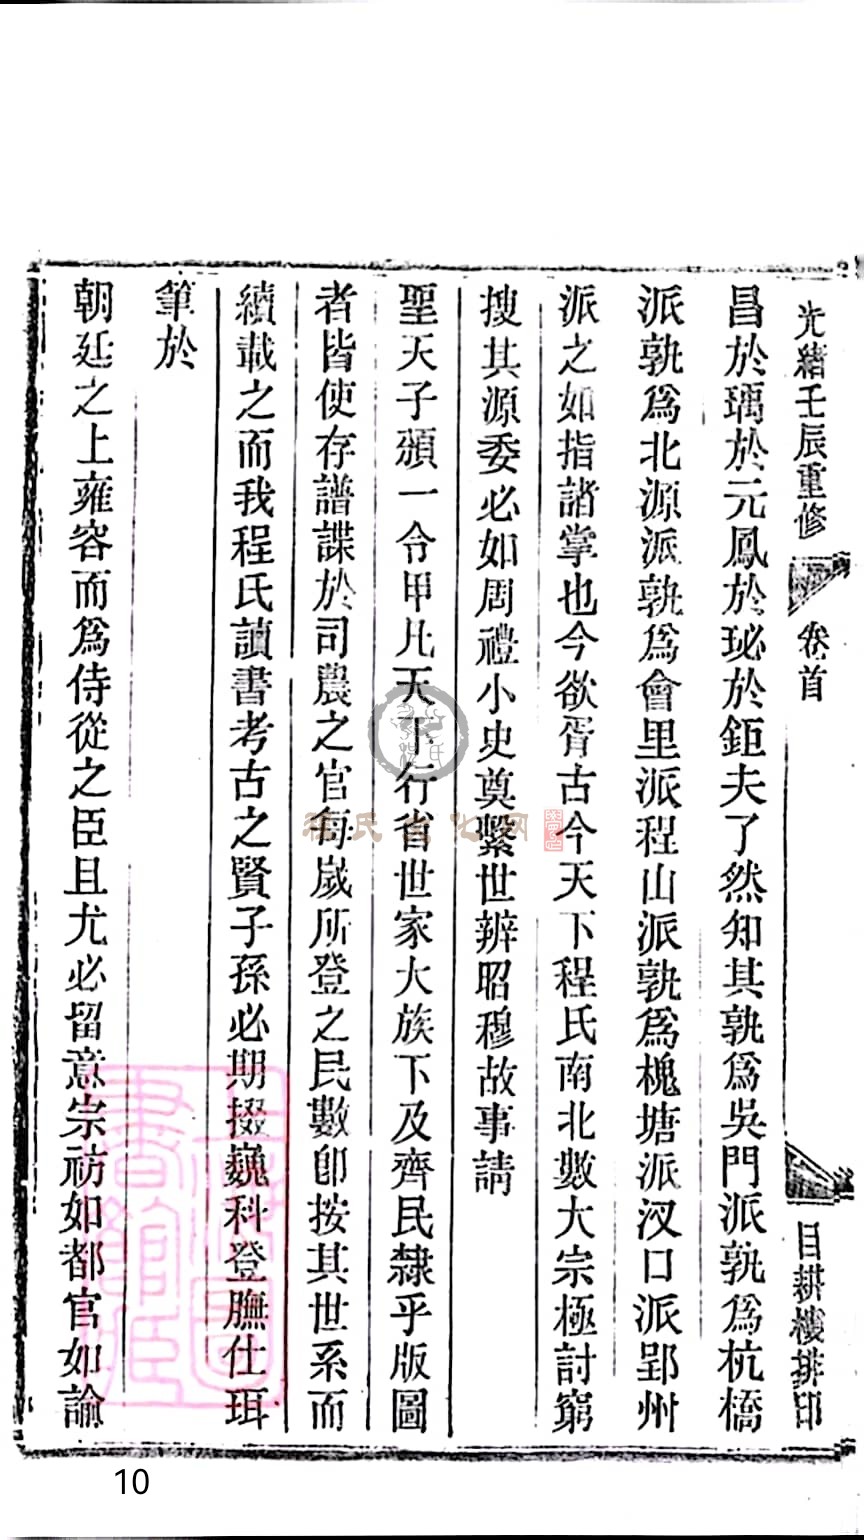 光緒壬辰重修
卷首
目耕樓排印
昌於瑀於元鳳於珌於鉅夫了然知其孰爲吳門派孰爲杭橋
派孰爲北源派孰爲會里派程山派孰爲槐塘派汊口派郢州
派之如指諸掌也今欲胥古今天下程氏南北數大宗極討窮
搜其源委必如周禮小史奠繫世辨昭穆故事請
聖天子頒一令甲凡天下行省世家大族下及齊民隸乎版圖
者皆使存譜諜於司農之官每歲所登之民數卽按其世系而
續載之而我程氏讀書考古之賢子孫必期掇巍科登膴仕珥
筆於
朝廷之上雍容而爲侍從之臣且尤必留意宗祊如都官如諭
10